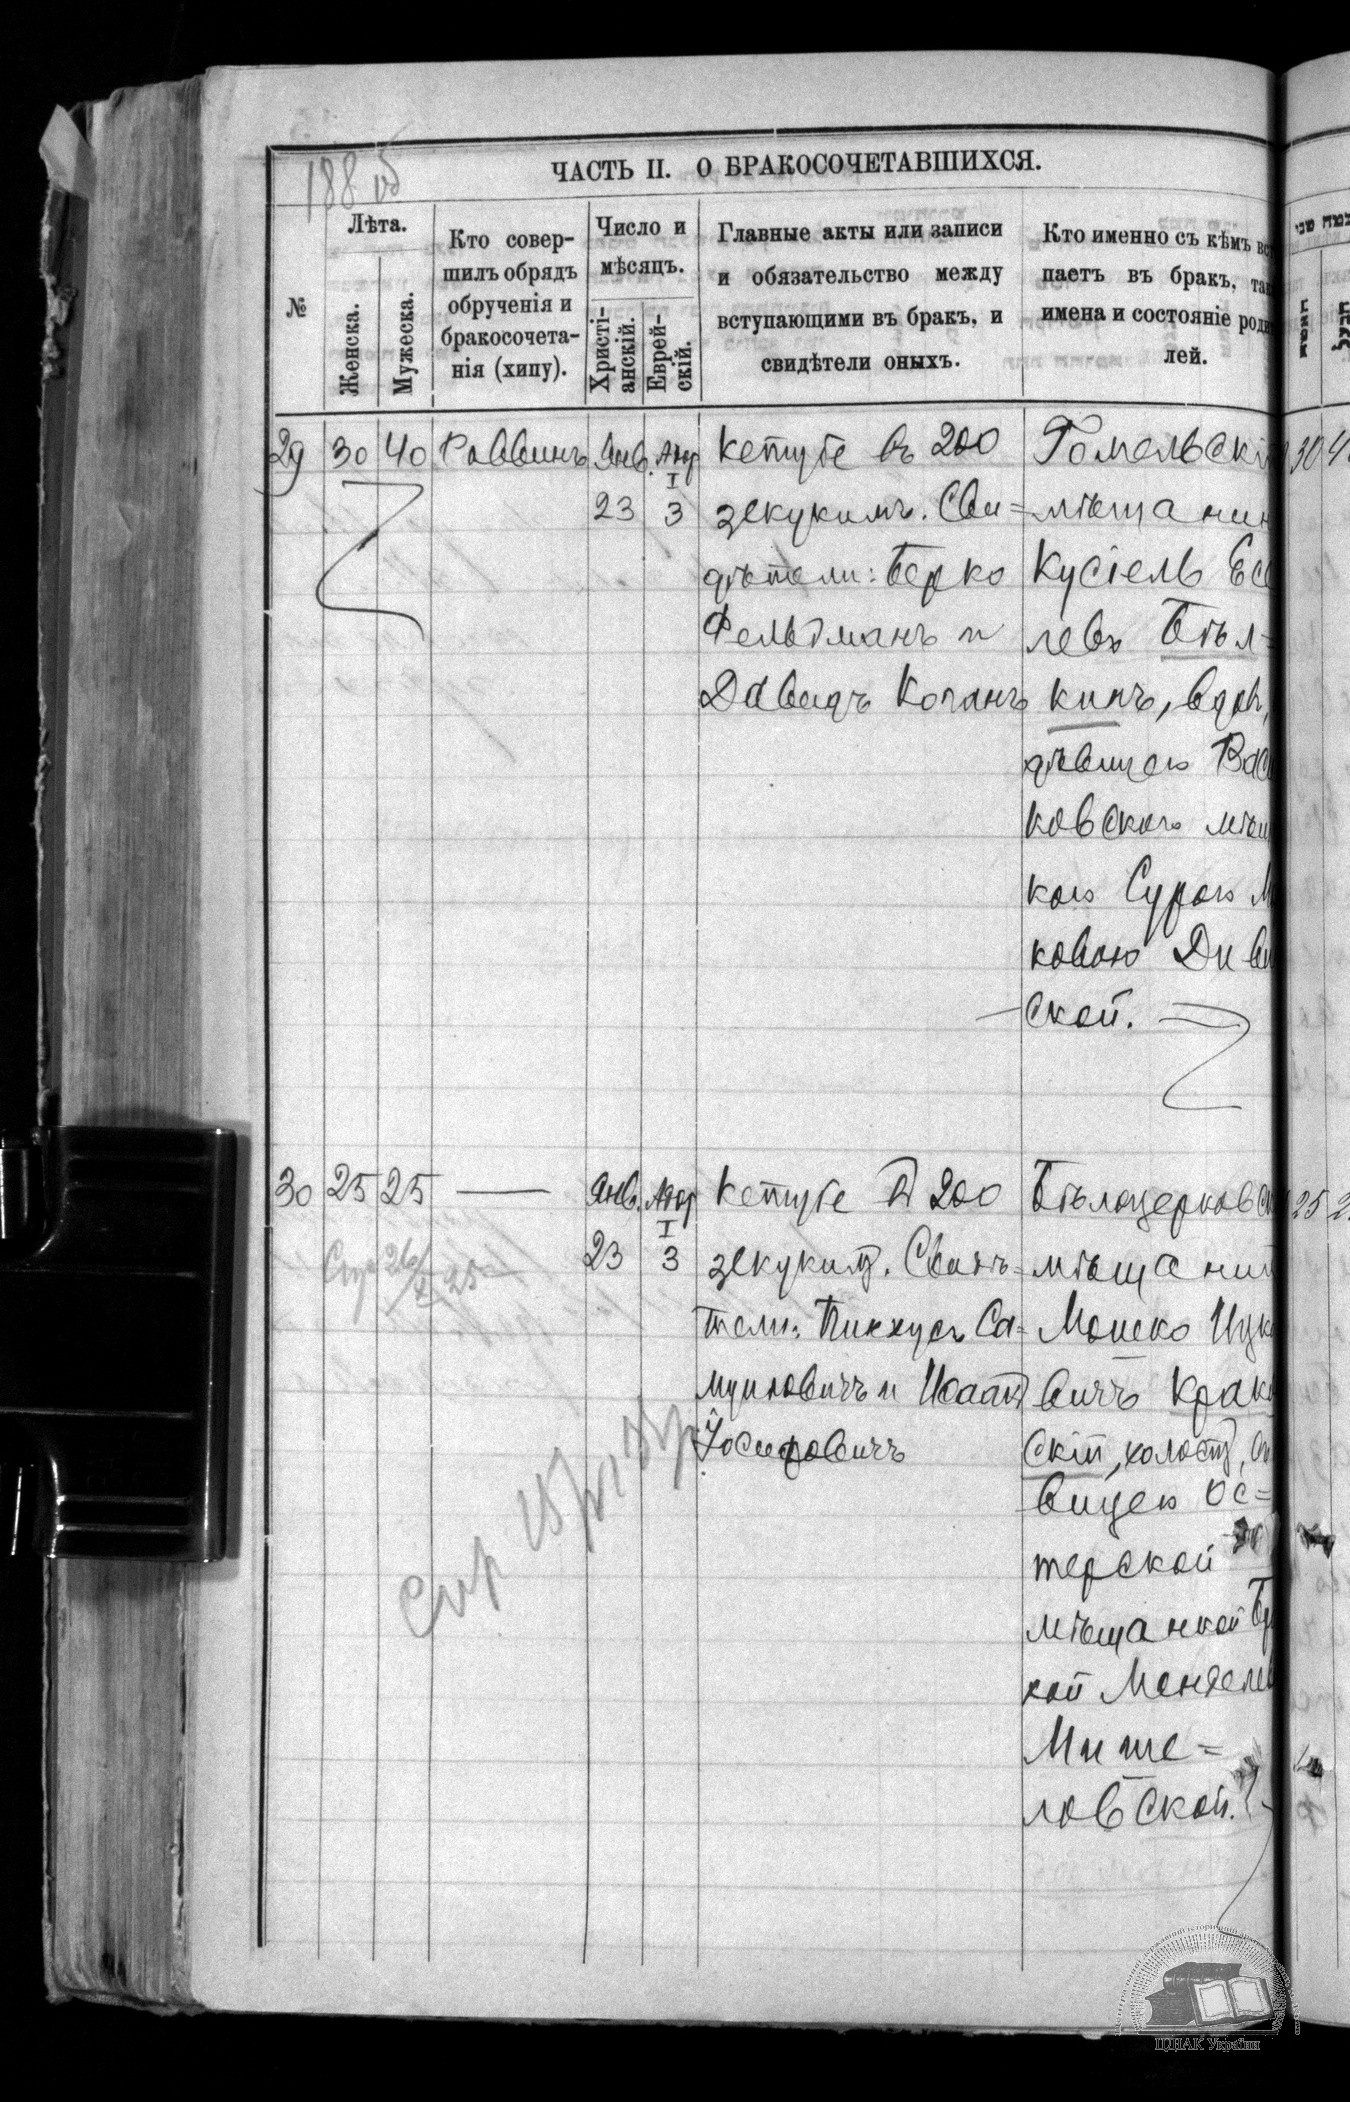 188 об
ЧАСТЬ II. О БРАКОСОЧЕТАВШИХСЯ.
№
Лѣта.
Женска.
Мужеска.
Кто совер-
шилъ обрядъ
обрученія и
бракосочета-
нія (хипу).
Число и
мѣсяцъ.
Христі-
анскій.
Еврей-
скій.
Главные акты или записи
и обязательство между
вступающими въ бракъ, и
свидѣтели оныхъ.
Кто именно съ кѣмъ вс
паетъ въ бракъ, та
имена и состояніе роди
лей.
29 30 40 Раввинъ Янв. Адар
I
23 3
Кетубе въ 200
зекукимъ. Сви=
дѣтели: Берко
Фельдманъ и
Давидъ Коганъ
Гомельскі
мѣщанин
Кусіель Есе
левъ Бѣл=
кинъ, вдов,
дѣвицею Вас
ковскою мѣщ
кою Сурою М
ковою Диви
ской.
30 25 25 — Янв. Адар
I
23 3
Кетубе въ 200
зекукимъ. Свидѣ=
тели: Пинхусъ Са=
муиловичъ и Исаакъ
Іосифовичъ
Бѣлоцерковск
мѣщанин
Мошко Ицко
вичъ Крако
скій, холостъ,
вицею Ос=
терской
мѣщанкой
кой Менделе
Мише=
ловской.
30 4
25 2
ЦДІАК України